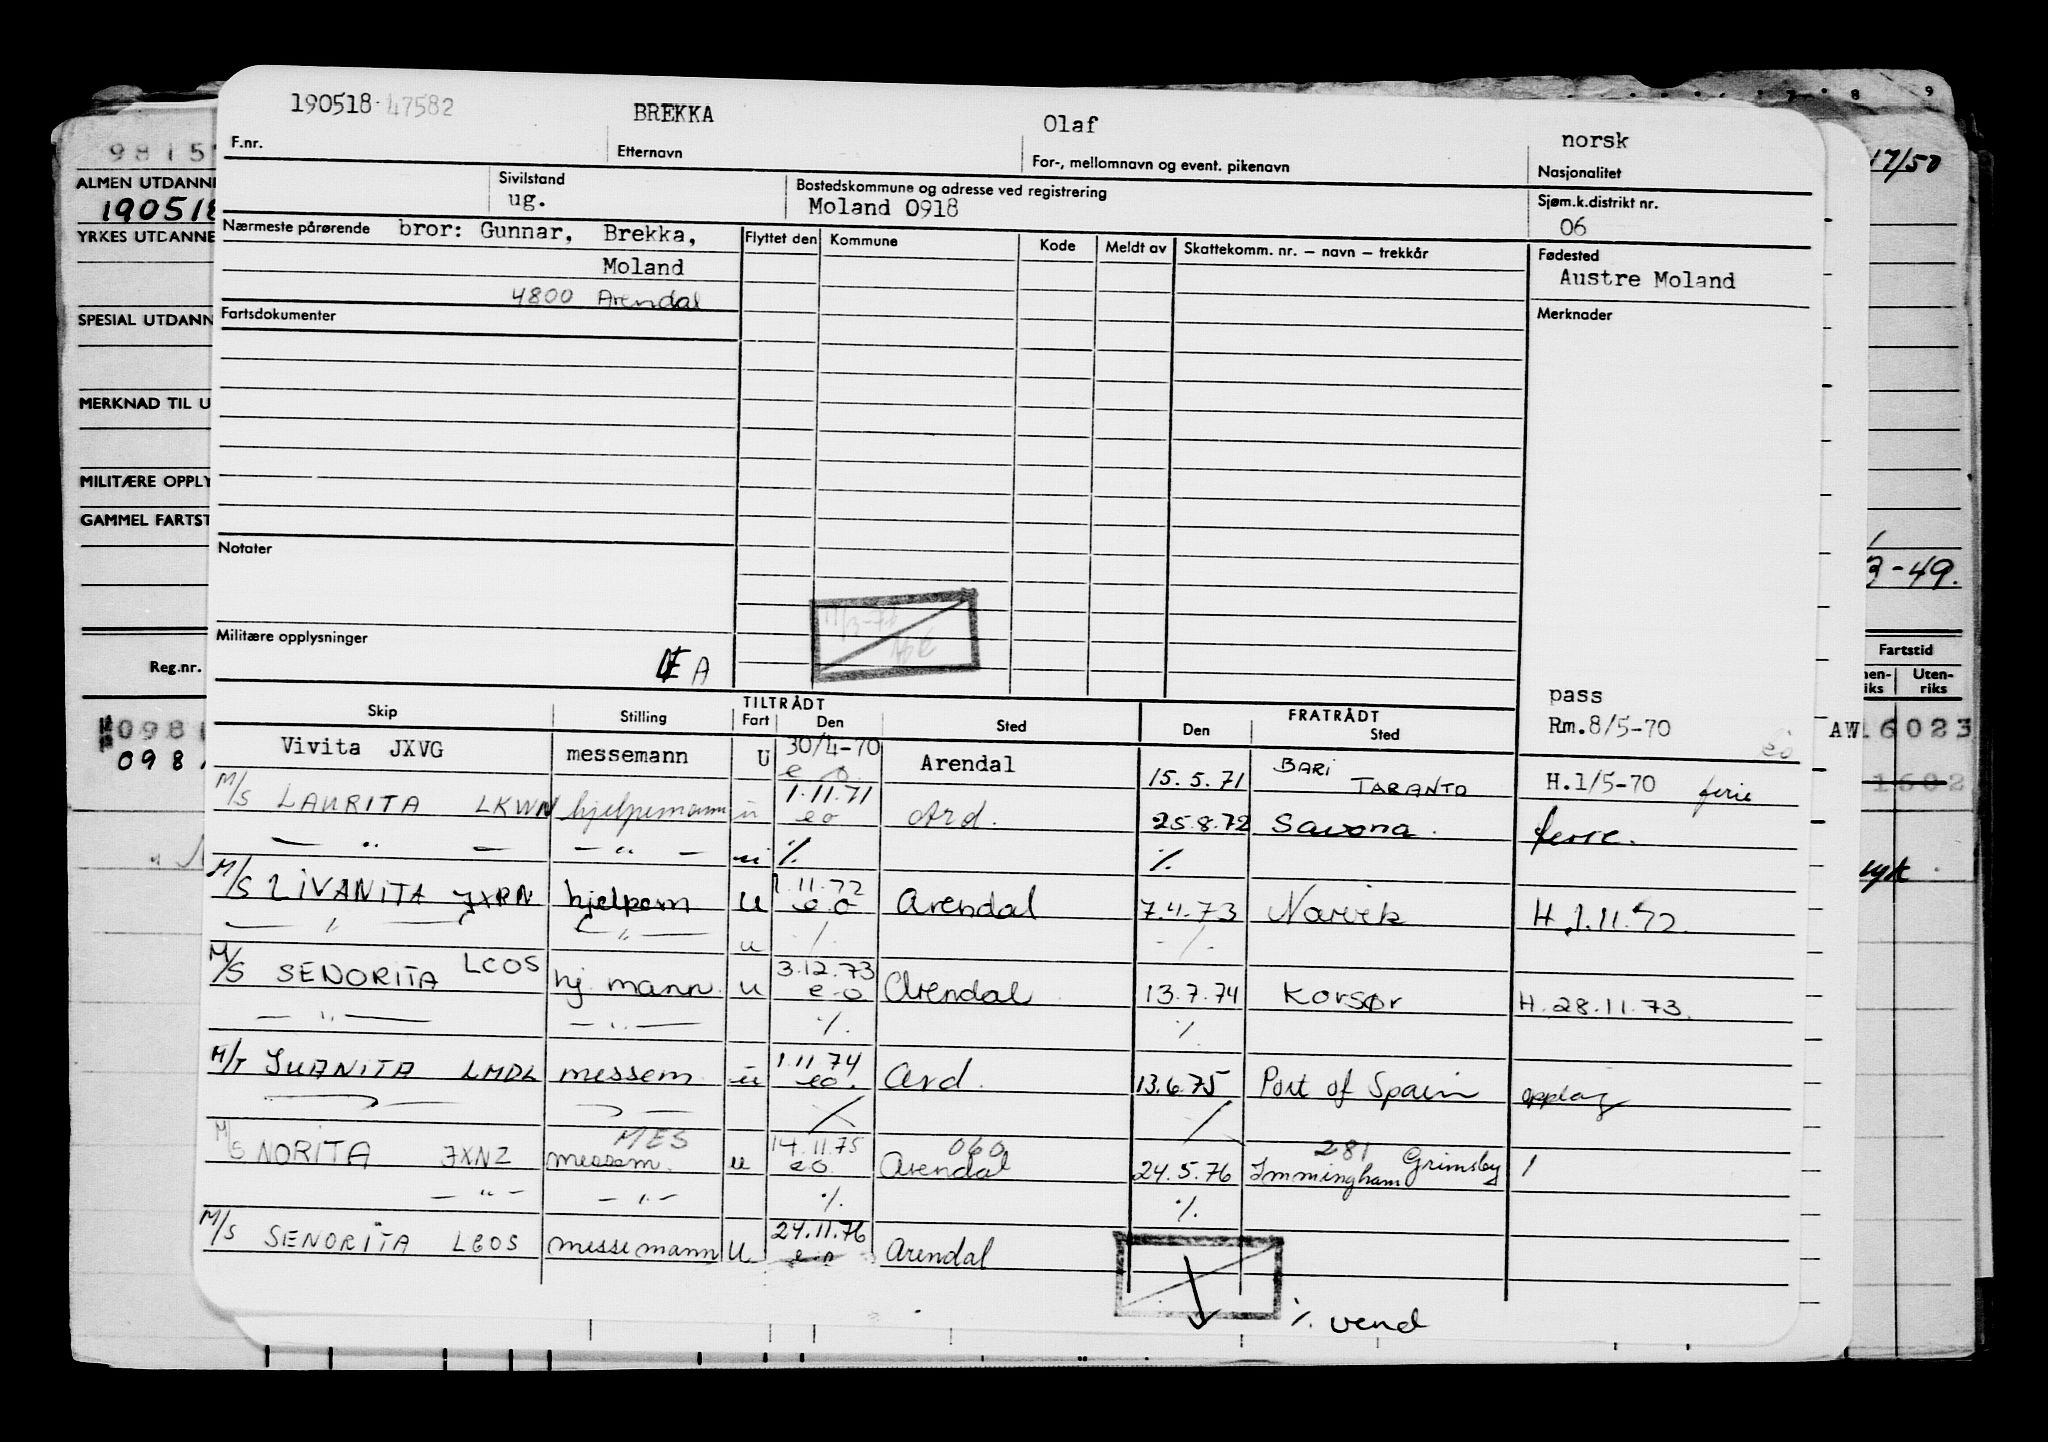 190518 47582 BREKKA Olaf norsk
F.nr. Etternavn For-, mellomnavn og event. pikenavn Nasjonalitet
Sivilstand Bostedskommune og adresse ved registrering Sjøm.k.distrikt nr.
ug. Moland 0918 06
Nærmeste pårørende bror: Gunnar, Brekka, Flyttet den Kommune Kode Meldt av Skattekomm. nr. – navn – trekkår Fødested
Moland Austre Moland
4800 Arendal
Fartsdokumenter Merknader
Notater
Militære opplysninger
A
pass
Rm.8/5-70
TILTRÅDT FRATRÅDT
Skip Stilling Fart Den Sted Den Sted
Vivita JXVG messemann U 30/4-70 Arendal 15.5.71 BARI TARANTO H.1/5-70 ferie
e o
M/S LAURITA LKWN hjelpemann u 1.11.71 Ard. 25.8.72 Savona. ferie.
eo
— " — — " — u ٪ ٪
M/S LIVANITA JXRN hjelpem u 1.11.72 Arendal 7.4.73 Narvik H.1.11.72.
e o
— " — — " — u ٪ ٪
M/S SENORITA LCOS hj. mann. u 3.12.73 Arendal 13.7.74 Korsør H.28.11.73.
e o
— " — — " — ٪ ٪
M/T JUANITA LMDL messem u 1.11.74 Ard. 13.6.75 Port of Spain opplag
eo.
MES 060 281
M/S NORITA JXNZ messem. u 14.11.75 Arendal 24.5.76 Immingham Grimsby
eo
— " — — " — ٪ ٪
M/S SENORITA LCOS messemann U 24.11.76 Arendal
٪ vend
9815
ALMEN UTDANNE
190518
YRKES UTDANNE
SPESIAL UTDANN
MERKNAD TIL U
MILITÆRE OPPLY
GAMMEL FARTST
Reg.nr.
0981
098
8 9
17/50
3-49.
Fartstid
nen-riks Uten-riks
AW16023
1602